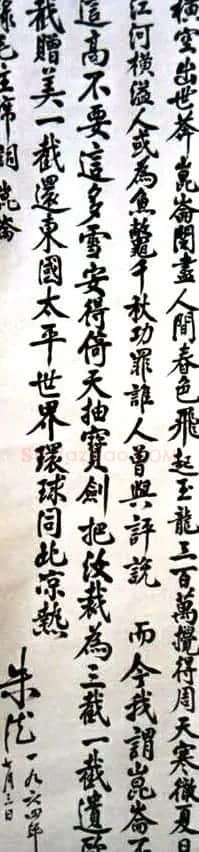 橫空出世莽崑崙閱盡人間春色飛起玉龍三百萬攪得周天寒徹夏日
江河橫溢人或為魚鱉千秋功罪誰人曾與評說 而今我謂崑崙不
這高不要這多雪安得倚天抽寶劍把汝裁為三截一截遺歐
截贈美一截還東國太平世界環球同此涼熱
錄毛主席詞崑崙
朱德
一九六四年
七月三日